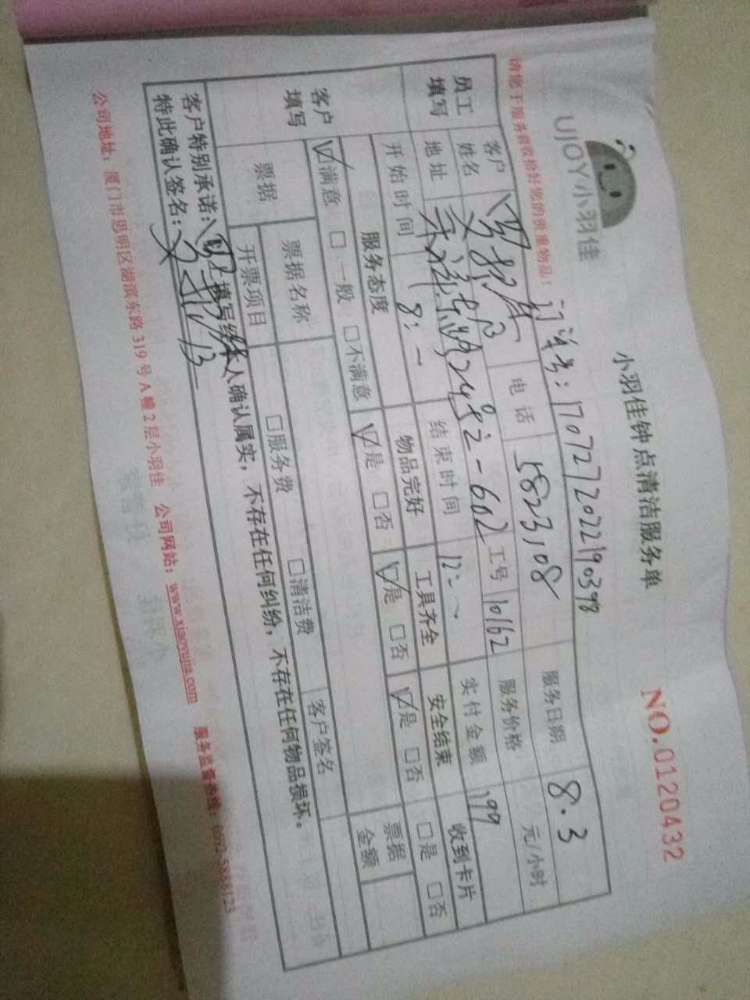 UJOY小羽佳
小羽佳钟点清洁服务单
NO.0120432
请您于服务前收拾好您的贵重物品!
订单号:
员工填写
客户姓名
电话
5823108
服务日期
8.3
地址
工号
10162
服务价格
元/小时
开始时间
8:
结束时间
12:
实付金额
199
收到卡片
客户填写
服务态度
物品完好
工具齐全
安全结束
□是 □否
☑满意 □一般 □不满意
☑是 □否
☑是 □否
☑是 □否
票据
票据名称
□服务费
□清洁费
客户签名
票据金额
开票项目
客户特别承诺:以上填写经本人确认属实,不存在任何纠纷,不存在任何物品损坏。
特此确认签名:
公司地址:厦门市思明区湖滨东路319号A幢2层小羽佳 公司网站:www.xiaoyujia.com 服务监督热线: